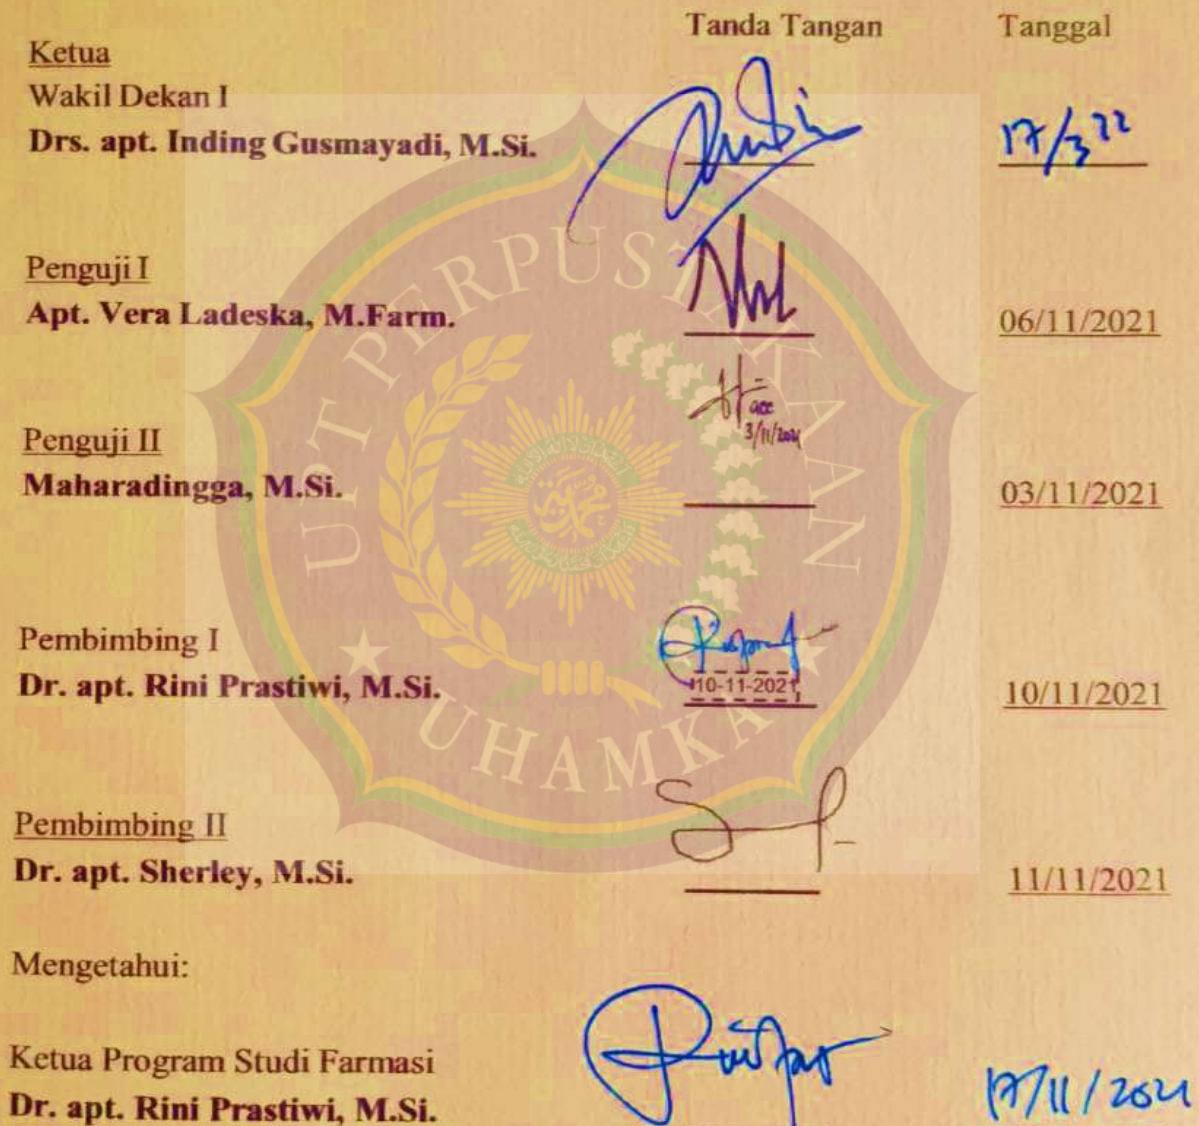 Tanda Tangan Tanggal
Ketua
Wakil Dekan I
Drs. apt. Inding Gusmayadi, M.Si. 17/3 22
Penguji I
Apt. Vera Ladeska, M.Farm. 06/11/2021
acc
3/11/2021
Penguji II
Maharadingga, M.Si. 03/11/2021
Pembimbing I
Dr. apt. Rini Prastiwi, M.Si. 10-11-2021 10/11/2021
Pembimbing II
Dr. apt. Sherley, M.Si. 11/11/2021
Mengetahui:
Ketua Program Studi Farmasi
Dr. apt. Rini Prastiwi, M.Si. 17/11/2021
UPT PERPUSTAKAAN
UHAMKA